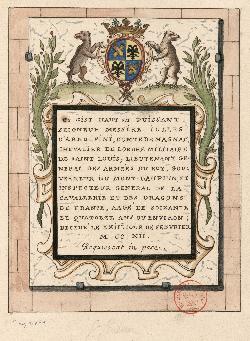 CY GIST HAUT ET PUISSANT
SEIGNEUR MESSIRE JULLES
D'ARNOLFINI, COMTE DE MAGNAC,
CHEVALIER DE L'ORDRE MILITAIRE
DE SAINT LOUIS, LIEUTENANT GE-
NERAL DES ARMEES DU ROY, GOU-
VERNEUR DU MONT-DAUPHIN ET
INSPECTEUR GENERAL DE LA
CAVALLERIE ET DES DRAGONS
DE FRANCE, AAGÉ DE SOIXANTE
DE QUATORZE ANS OU ENVIRON;
DECEDE LE JOUR DE FEBVRIER
M CC XII.
Requiescat in pace.